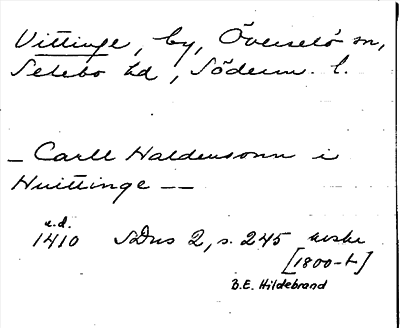 Vittinge, by, Överselö sn,
Selebo hd, Söderm. l.
_ Carll Haldensonn i
Huittinge __
u.d.
1410 SDns 2, s. 245 avskr
[1800-t]
B.E. Hildebrand